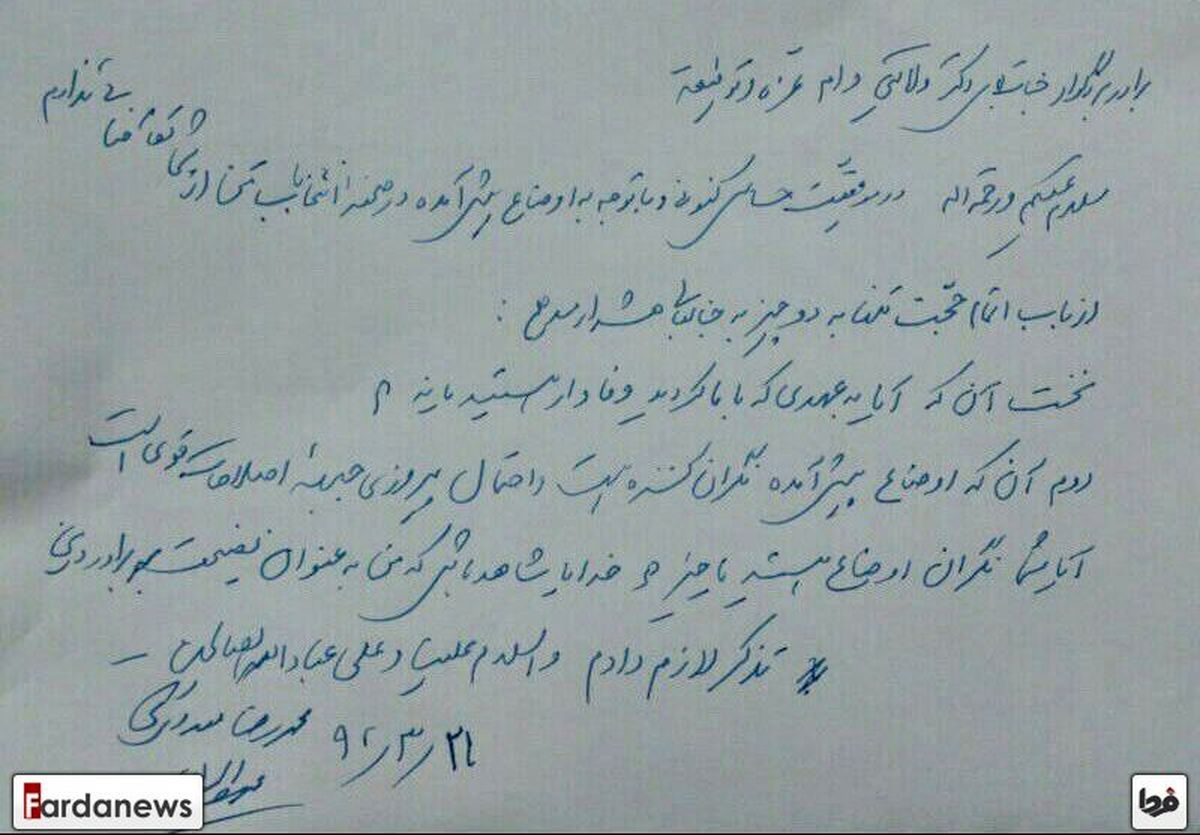 برادر بزرگوار جناب آقای دکتر ولایتی دام عزه و توفیقه
سلام علیکم و رحمة اله در موقعیت حساس کنونی و با توجه به اوضاع پیش آمده در صحنه انتخابات من از شما تقاضایی ندارم
از باب اتمام حجت تنها به دو چیز به جنابعالی هشدار میدهم :
نخست آن که آیا به عهدی که با ما کردید وفادار هستید یا نه ؟
دوم آن که اوضاع پیش آمده نگران کننده است و احتمال پیروزی جبهه اصلاحات قوی است
آیا شما نگران اوضاع هستید یا خیر ؟ خدایا شاهد باش که من به عنوان نصیحت به برادر دینی
تذکر لازم دادم والسلام علینا و علی عباد الله الصالحین
محمدرضا مهدوی کنی
۹۲/۳/۲۱
Fardanews
فردا